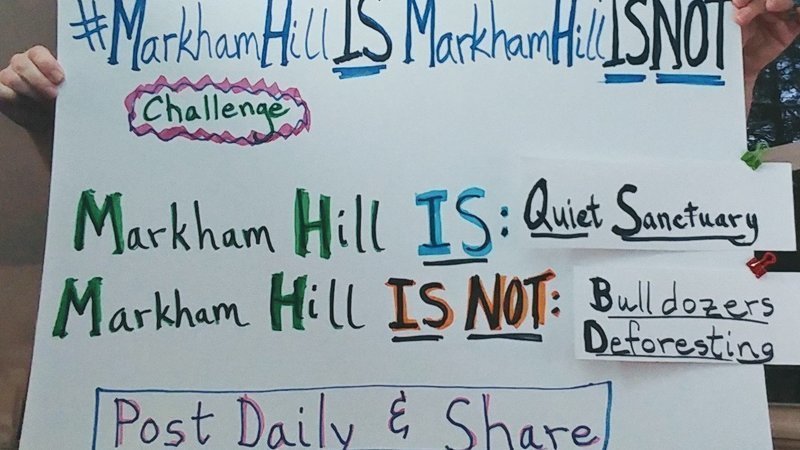 #MarkhamHillIS MarkhamHillISNOT
Challenge
Markham Hill IS: Quiet Sanctuary
Markham Hill IS NOT: Bulldozers
Deforesting
Post Daily & Share